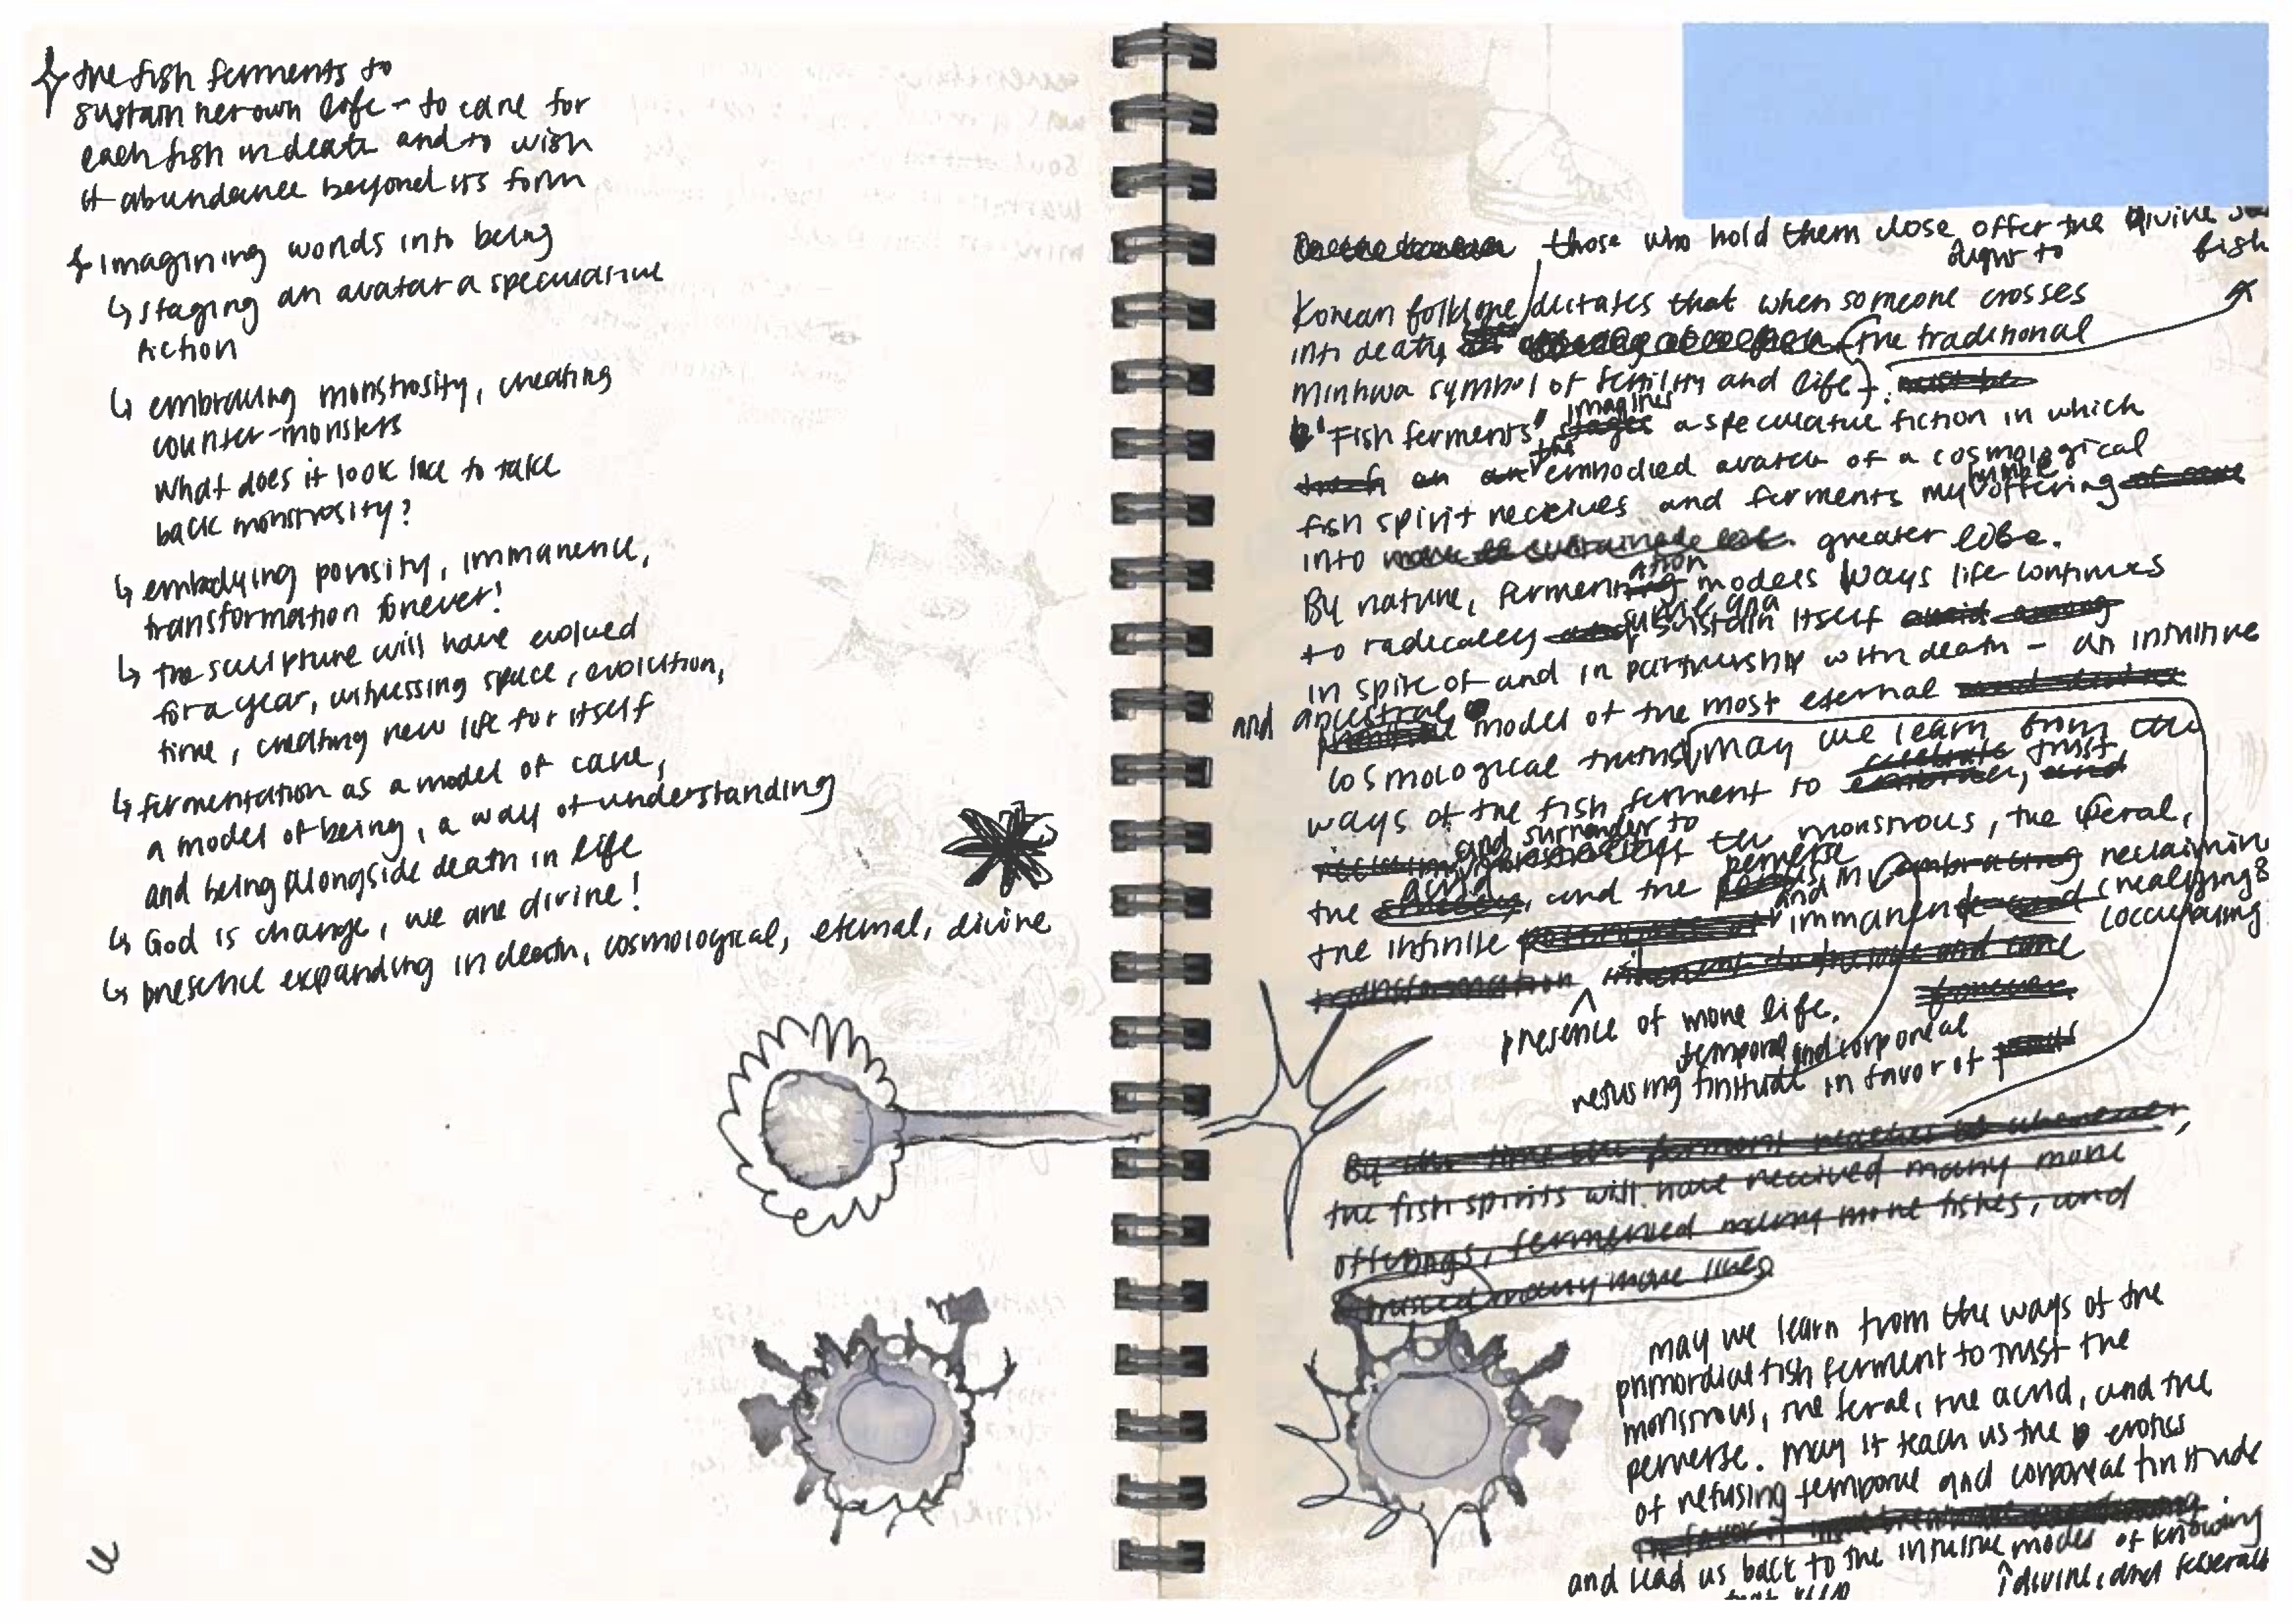 the fish ferments to
sustain her own life - to care for
each fish in death and to wish
it abundance beyond its form
imagining worlds into being
↳ staging an avatar a speculative
fiction
↳ embracing monstrosity, creating
counter-monsters
what does it look like to take
back monstrosity?
↳ embodying porosity, immanence,
transformation forever!
↳ the sculpture will have evolved
for a year, witnessing space, evolution,
time, creating new life for itself
↳ fermentation as a model of care,
a model of being, a way of understanding
and being alongside death in life
↳ God is change, we are divine!
↳ presence expanding in death, cosmological, eternal, divine
those who hold them close offer the divine
light to fish
Korean folklore dictates that when someone crosses
into death, (the traditional
Minhwa symbol of fertility and life). must be
imagines
"Fish ferments" stages a speculative fiction in which
the
an embodied avatar of a cosmological
humble
fish spirit receives and ferments my offering of care
into greater life.
ation
By nature, fermenting models ways life continues
to radically and sustain itself amid among
in spite of and in partnership with death - an intuitive
and ancestral model of the most eternal
cosmological truths. may we learn from the
celebrate trust
ways of the fish ferment to embrace, and
and surrender to
the monstrous, the feral,
acrid perverse
the , and the in embracing reclaiming
and
the infinite immanent creating &
transformation occupying
presence of more life. forever.
temporal and corporeal
refusing finitude in favor of
By the time the ferment reaches
the fish spirits will have received many more
offerings, fermented many more fishes, and
many more lives
may we learn from the ways of the
primordial fish ferment to trust the
monstrous, the feral, the acrid, and the
perverse. may it teach us the erotics
of refusing temporal and corporeal finitude
in favor of
and lead us back to the intuitive modes of knowing
divine, and